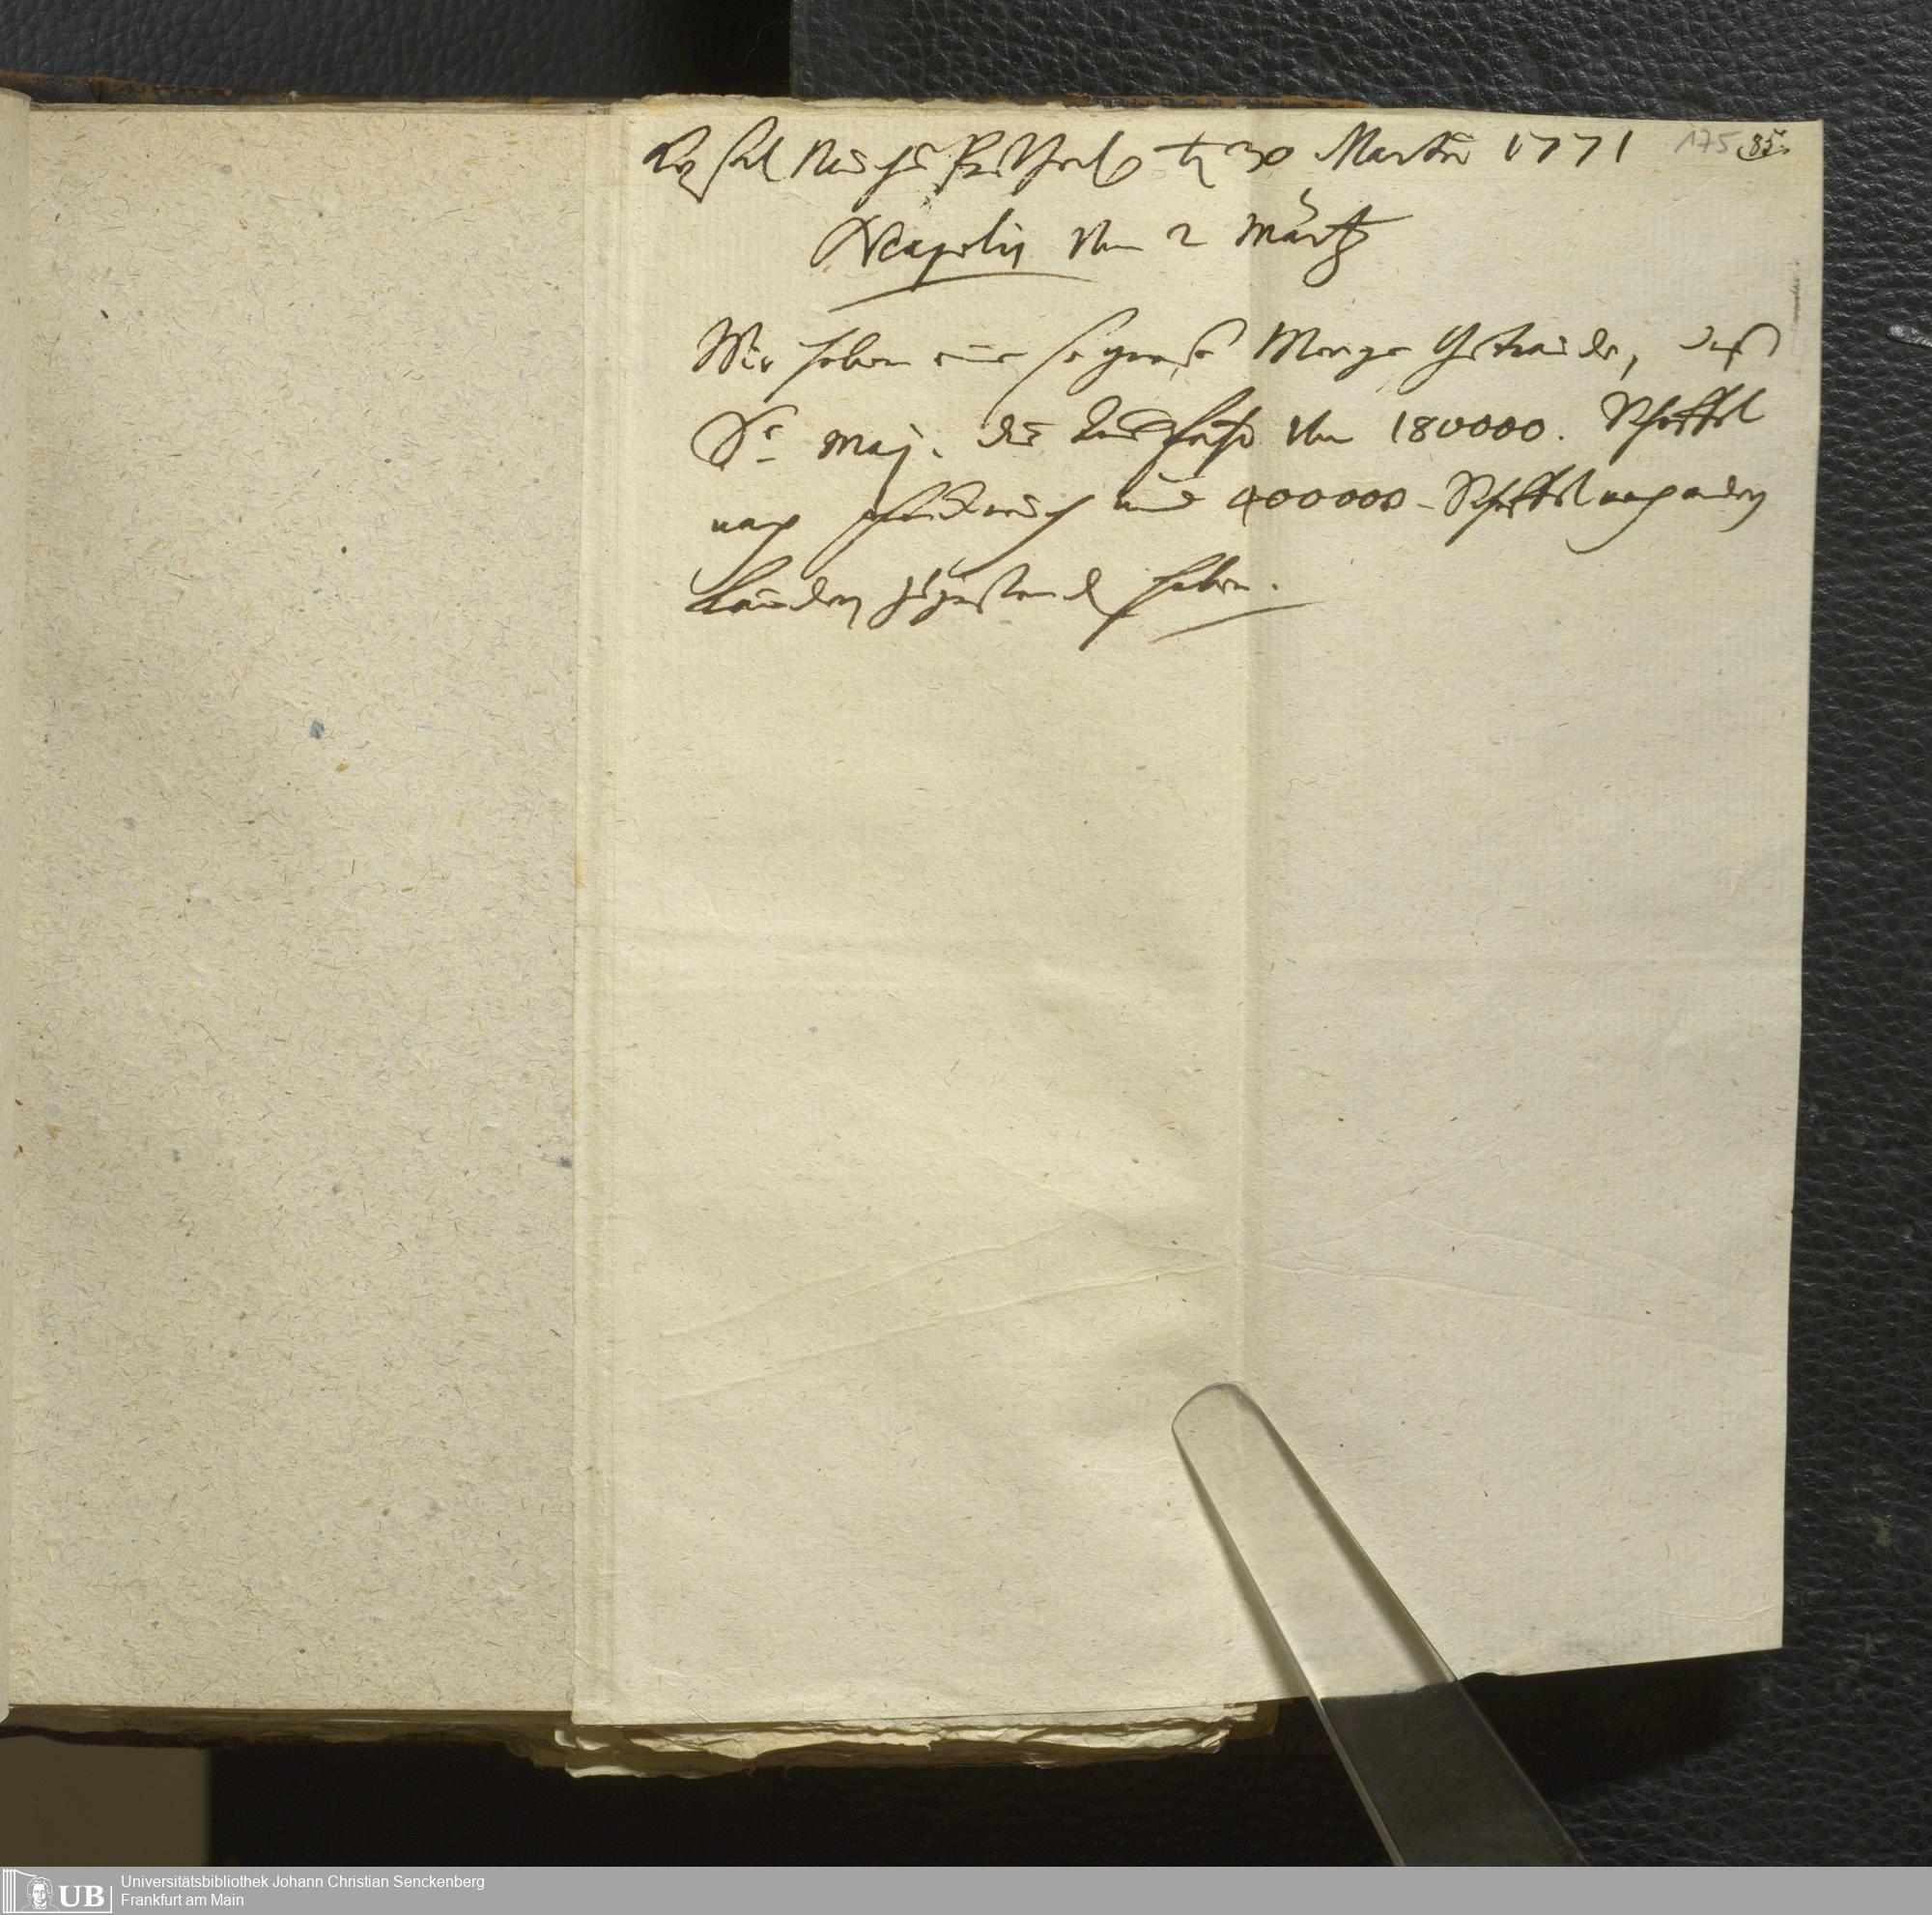 30 Martii 1771 175 85.
Neapolis vom 2 Märtz
Wir haben eine so große Menge Getraide, daß
Se Maj. die Ausfuhr von 180000. Scheffel
nach Frankreich und 400000 Scheffel nach andern
Ländern zugestanden haben.
UB Universitätsbibliothek Johann Christian Senckenberg
Frankfurt am Main